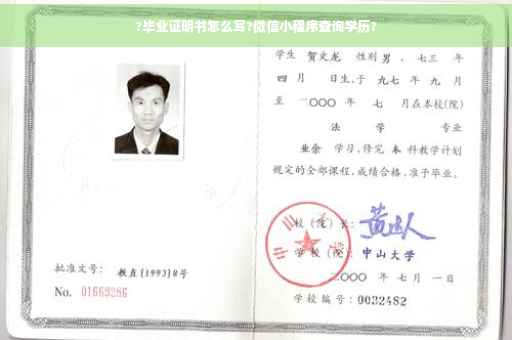 ?毕业证明书怎么写?微信小程序查询学历?
学生 贺文龙 性别 男 、七三 年
四 月 日生,于 九七 年 九 月
至 二〇〇〇 年 七 月在本校(院)
法 学 专业
业余 学习,修完 本 科教学计划
规定的全部课程,成绩合格,准予毕业。
校(院)长:
学校(院): 中山大学
二〇〇〇 年 七 月 一 日
学校编号: 0032482
批准文号: 教直[1993]8号
No. 01663286